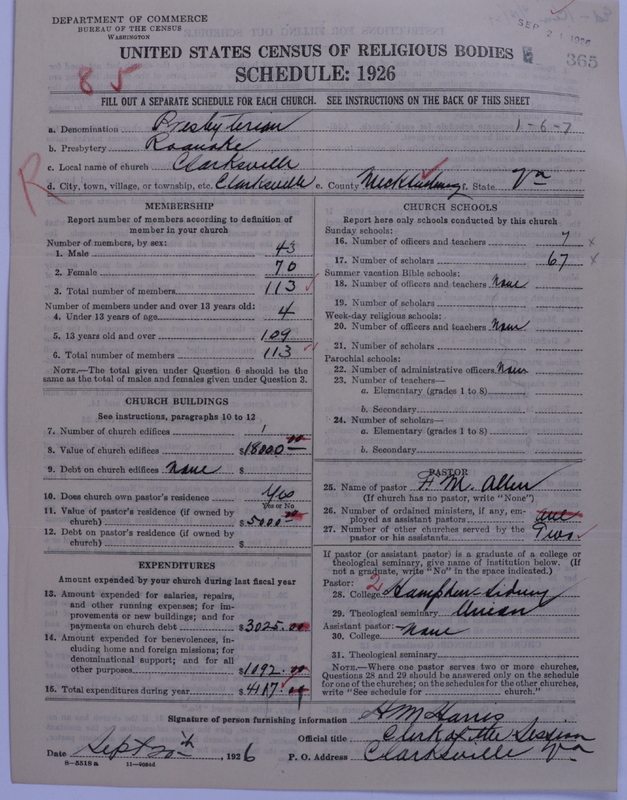 DEPARTMENT OF COMMERCE
BUREAU OF THE CENSUS
WASHINGTON
SEP 21 1926
365
UNITED STATES CENSUS OF RELIGIOUS BODIES
SCHEDULE: 1926
85
FILL OUT A SEPARATE SCHEDULE FOR EACH CHURCH. SEE INSTRUCTIONS ON THE BACK OF THIS SHEET
a. Denomination Presbyterian 1-6-7
b. Presbytery Roanoke
c. Local name of church Clarksville
R
d. City, town, village, or township, etc. Clarksville e. County Mecklenburg f. State Va
MEMBERSHIP
Report number of members according to definition of member in your church
Number of members, by sex:
1. Male 43
2. Female 70
3. Total number of members 113
Number of members under and over 13 years old:
4. Under 13 years of age 4
5. 13 years old and over 109
6. Total number of members 113
NOTE.—The total given under Question 6 should be the
same as the total of males and females given under Question 3.
CHURCH BUILDINGS
See instructions, paragraphs 10 to 12
7. Number of church edifices 1
8. Value of church edifices $18000.00
9. Debt on church edifices None $
10. Does church own pastor's residence Yes
Yes or No
11. Value of pastor's residence (if owned by
church) $5000.00
12. Debt on pastor's residence (if owned by
church) $
EXPENDITURES
Amount expended by your church during last fiscal year
13. Amount expended for salaries, repairs,
and other running expenses; for im-
provements or new buildings; and for
payments on church debt $3025.00
14. Amount expended for benevolences, in-
cluding home and foreign missions; for
denominational support; and for all
other purposes $1092.00
15. Total expenditures during year $4117.00
CHURCH SCHOOLS
Report here only schools conducted by this church
Sunday schools:
16. Number of officers and teachers 7 x
17. Number of scholars 67 x
Summer vacation Bible schools:
18. Number of officers and teachers None
19. Number of scholars
Week-day religious schools:
20. Number of officers and teachers None
21. Number of scholars
Parochial schools:
22. Number of administrative officers None
23. Number of teachers—
a. Elementary (grades 1 to 8)
b. Secondary
24. Number of scholars—
a. Elementary (grades 1 to 8)
b. Secondary
PASTOR
25. Name of pastor H. M. Allen
(If church has no pastor, write "None")
26. Number of ordained ministers, if any, em-
ployed as assistant pastors
27. Number of other churches served by the
pastor or his assistants Two
If pastor (or assistant pastor) is a graduate of a college or
theological seminary, give name of institution below. (If
not a graduate, write "No" in the space indicated.)
Pastor: 2
28. College Hampden-Sidney
29. Theological seminary Union
Assistant pastor:
30. College None
31. Theological seminary
NOTE.—Where one pastor serves two or more churches,
Questions 28 and 29 should be answered only on the schedule
for one of the churches; on the schedules for the other churches,
write "See schedule for church."
Signature of person furnishing information H M Harris
Official title Clerk of the Session
Date Sept 20th, 1926 P. O. Address Clarksville Va
8-5518a 11-9056a